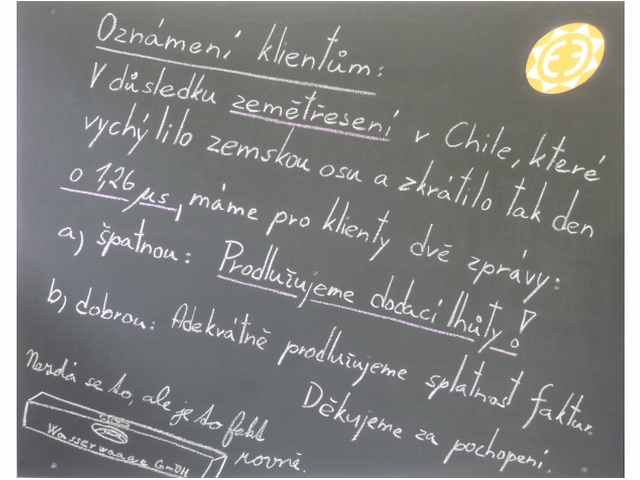 Oznámení klientům:
V důsledku zemětřesení v Chile, které
vychýlilo zemskou osu a zkrátilo tak den
o 1,26 μs, máme pro klienty dvě zprávy:
a) špatnou: Prodlužujeme dodací lhůty!
b) dobrou: Adekvátně prodlužujeme splatnost faktur.
Děkujeme za pochopení.
Nezdá se to, ale je to fakt
rovně.
Wasserwaage GmbH